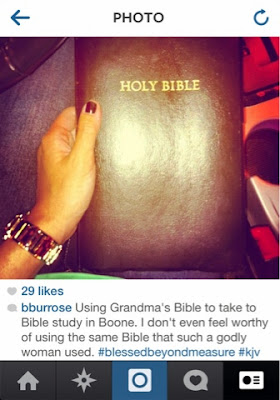 PHOTO
HOLY BIBLE
29 likes
bburrose Using Grandma's Bible to take to
Bible study in Boone. I don't even feel worthy
of using the same Bible that such a godly
woman used. #blessedbeyondmeasure #kjv